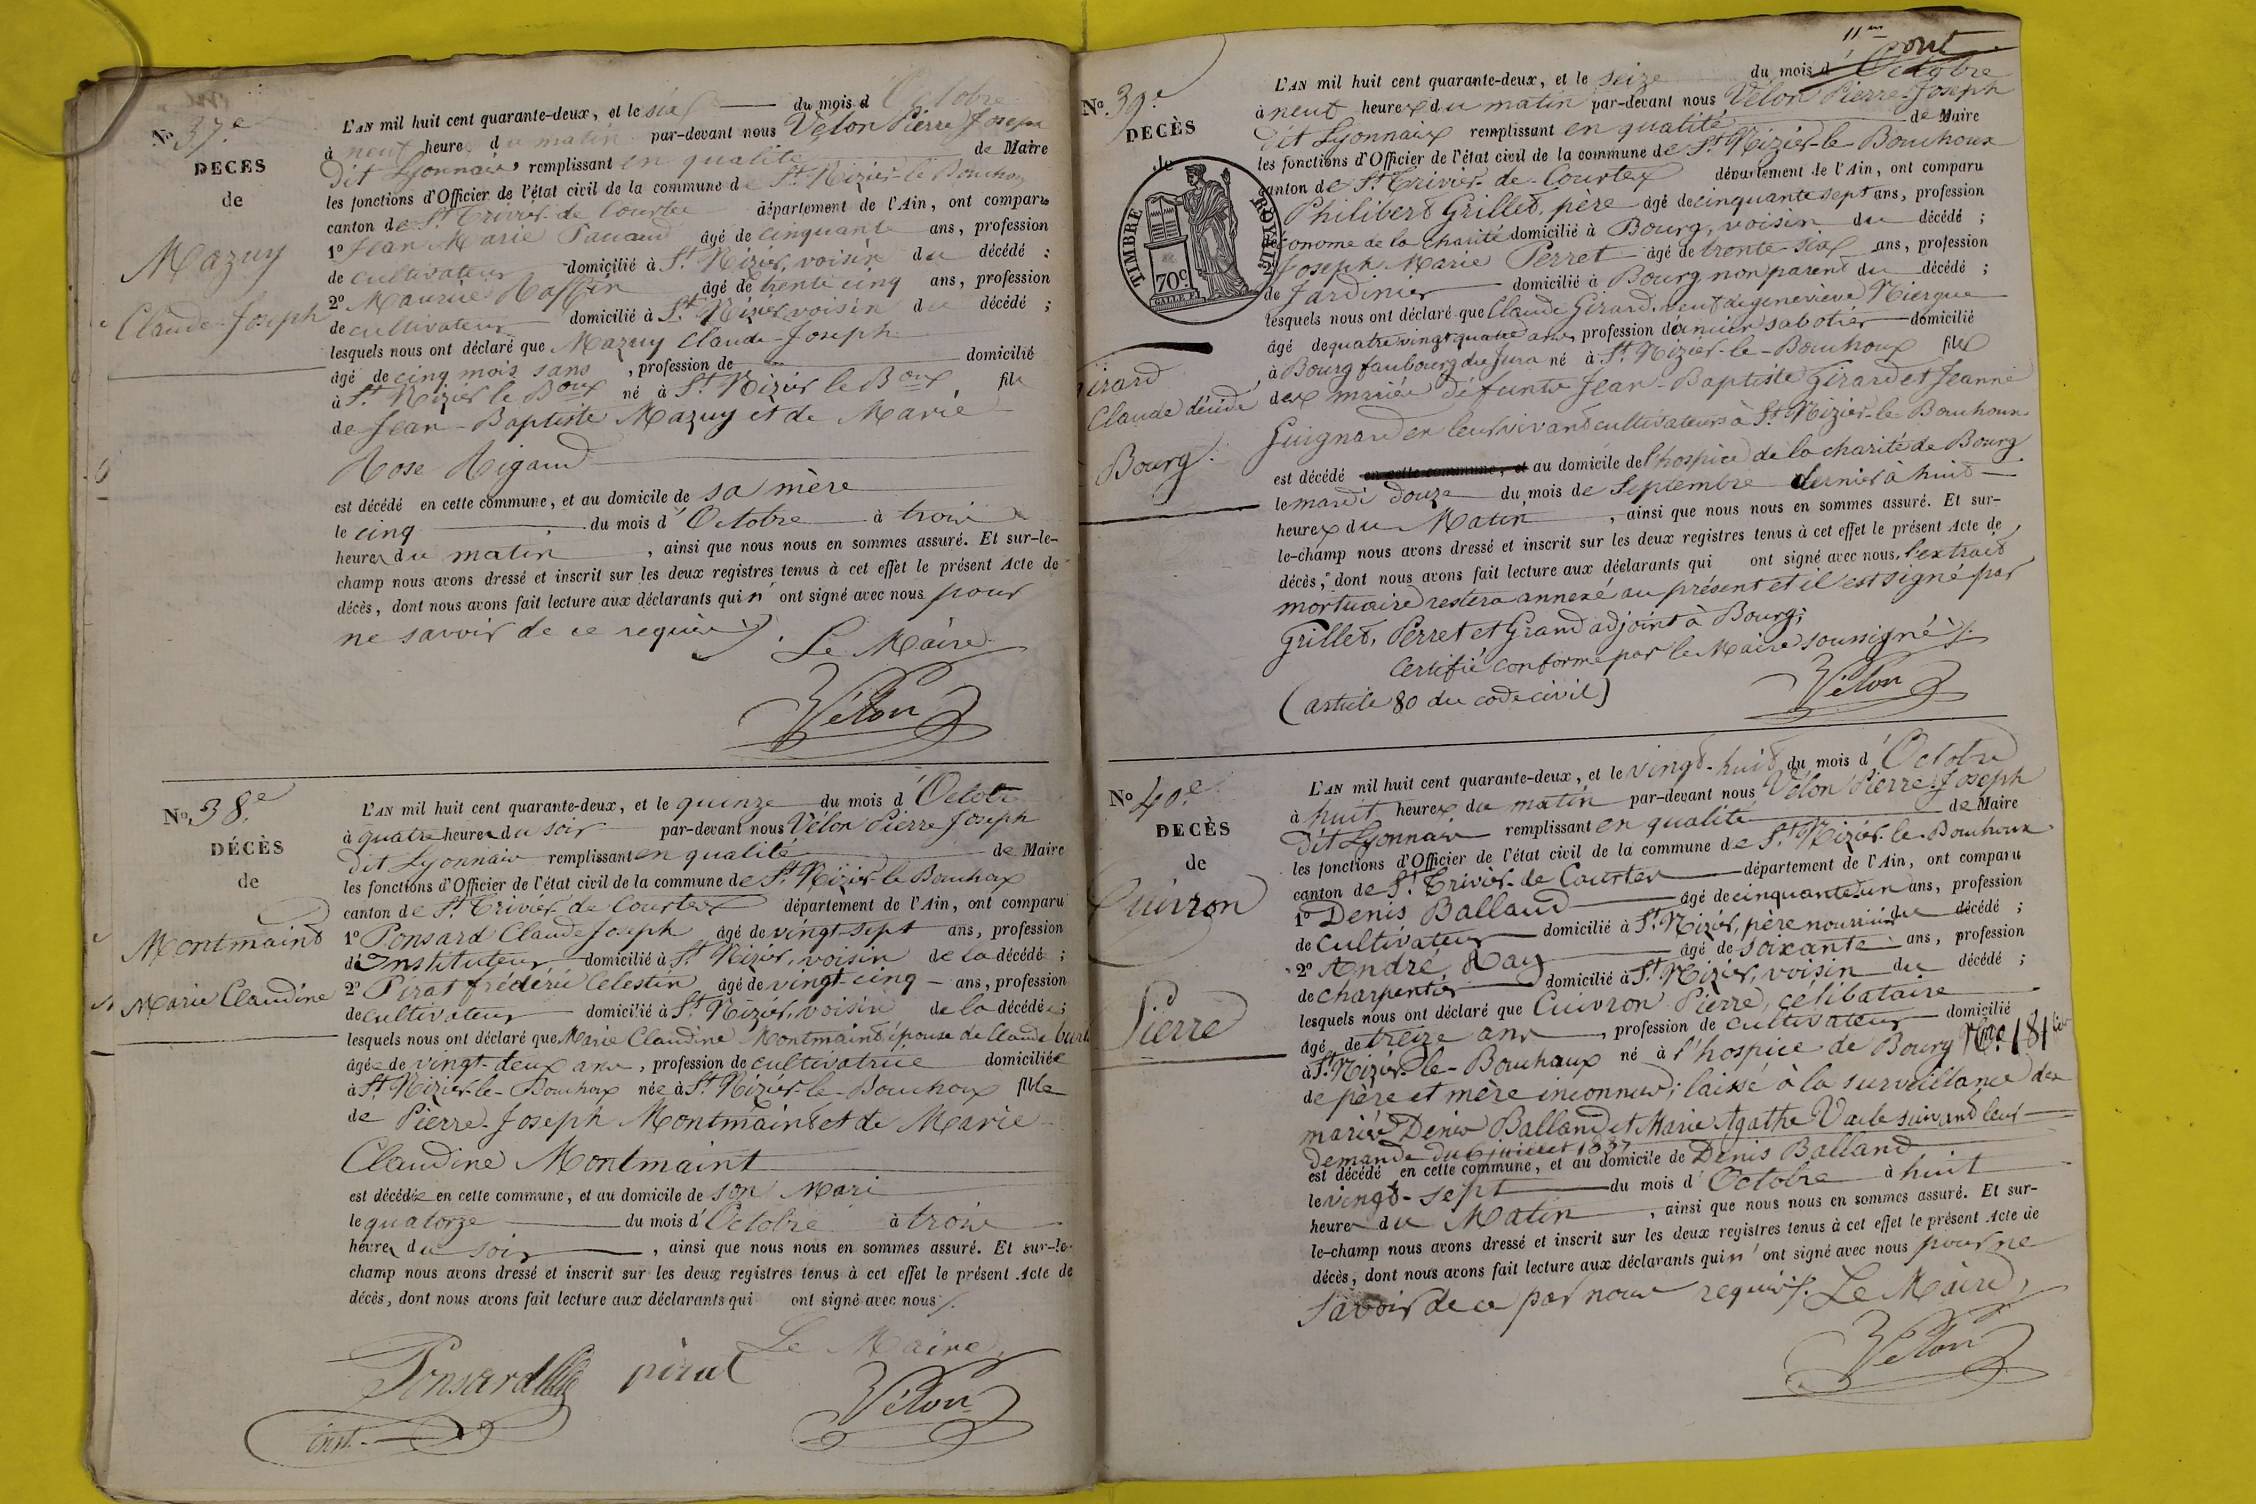 No 37.e
DECES
de
Mazuy
Claude-Joseph
L'AN mil huit cent quarante-deux, et le six du mois d'Octobre
à neuf heures du matin par-devant nous Vélon Pierre Joseph
dit Lyonnais remplissant en qualité de Maire
les fonctions d'Officier de l'état civil de la commune de St. Nizier-le-Bouhoux
canton de St. Trivier-de-Courtes département de l'Ain, ont comparu
1o Jean Marie âgé de cinquante ans, profession
de cultivateur domicilié à St. Nizier, voisin du décédé ;
2o Maurice Raffin âgé de trente cinq ans, profession
de cultivateur domicilié à St. Nizier voisin du décédé ;
lesquels nous ont déclaré que Mazuy Claude-Joseph
âgé de cinq mois sans , profession de domicilié
à St. Nizier le Boux né à St. Nizier le Boux , fils
de Jean-Baptiste Mazuy et de Marie
Rose Rigaud
est décédé en cette commune, et au domicile de sa mère
le cinq du mois d'Octobre à trois
heures du matin , ainsi que nous nous en sommes assuré. Et sur-le-
champ nous avons dressé et inscrit sur les deux registres tenus à cet effet le présent Acte de
décès, dont nous avons fait lecture aux déclarants qui n'ont signé avec nous pour
ne savoir de ce requis ./.
Le Maire
Vélon
No 38.e
DÉCÈS
de
Montmaint
Marie Claudine
L'AN mil huit cent quarante-deux, et le quinze du mois d'Octobre
à quatre heures du soir par-devant nous Vélon Pierre Joseph
dit Lyonnais remplissant en qualité de Maire
les fonctions d'Officier de l'état civil de la commune de St. Nizier-le-Bouhoux
canton de St. Trivier-de-Courtes département de l'Ain, ont comparu
1o Ponsard Claude Joseph âgé de vingt-sept ans, profession
d'Instituteur domicilié à St. Nizier, voisin de la décédé ;
2o Pirat frédéric Celestin âgé de vingt-cinq ans, profession
de cultivateur domicilié à St. Nizier, voisin de la décédée ;
lesquels nous ont déclaré que Marie Claudine Montmaint épouse de Claude
âgée de vingt-deux ans , profession de cultivatrice domiciliée
à St. Nizier-le-Bouhoux née à St. Nizier-le-Bouhoux fille
de Pierre-Joseph Montmaint et de Marie
Claudine Montmaint
est décédée en cette commune, et au domicile de son Mari
le quatorze du mois d'Octobre à trois
heures du soir , ainsi que nous nous en sommes assuré. Et sur-le-
champ nous avons dressé et inscrit sur les deux registres tenus à cet effet le présent Acte de
décès, dont nous avons fait lecture aux déclarants qui ont signé avec nous ./.
Le Maire,
Ponsard pirat Vélon
inst.
11em
No. 39.e
DECÈS
de
TIMBRE ROYAL
70c
Girard
Claude décédé à
Bourg.
L'AN mil huit cent quarante-deux, et le seize du mois d'Octobre
à neuf heures du matin par-devant nous Vélon Pierre-Joseph
dit Lyonnais remplissant en qualité de Maire
les fonctions d'Officier de l'état civil de la commune de St. Nizier-le-Bouhoux
canton de St. Trivier-de-Courtes département de l'Ain, ont comparu
Philibert Grillet, père âgé de cinquante sept ans, profession
d'économe de la charité domicilié à Bourg, voisin du décédé ;
Joseph Marie Perret âgé de trente-six ans, profession
de Jardinier domicilié à Bourg non parent du décédé ;
lesquels nous ont déclaré que Claude Girard, veuf de geneviève Niergue
âgé de quatre vingt quatre ans, profession d'ancien sabotier domicilié
à Bourg faubourg du Jura né à St. Nizier-le-Bouhoux fils
des mariés défunts Jean-Baptiste Girard et Jeanne
Guignard en leur vivant cultivateurs à St. Nizier-le-Bouhoux
est décédé en cette commune, et au domicile de l'hospice de la charité de Bourg
le mardi douze du mois de Septembre dernier à huit
heures du Matin , ainsi que nous nous en sommes assuré. Et sur-
le-champ nous avons dressé et inscrit sur les deux registres tenus à cet effet le présent Acte de
décès, dont nous avons fait lecture aux déclarants qui ont signé avec nous, l'extrait
mortuaire restera annexé au présent et il est signé par
Grillet, Perret et Grand adjoint à Bourg;
Certifié conforme par le Maire soussigné ./.
(article 80 du code civil) Vélon
No 40.e
DECÈS
de
Cuivron
Pierre
L'AN mil huit cent quarante-deux, et le vingt-huit du mois d'Octobre
à huit heures du matin par-devant nous Vélon Pierre-Joseph
dit Lyonnais remplissant en qualité de Maire
les fonctions d'Officier de l'état civil de la commune de St. Nizier-le-Bouhoux
canton de St. Trivier-de-Courtes département de l'Ain, ont comparu
1o Denis Balland âgé de cinquante-un ans, profession
de cultivateur domicilié à St. Nizier, père nourricier du décédé ;
2o André Ray âgé de soixante ans, profession
de charpentier domicilié à St. Nizier, voisin du décédé ;
lesquels nous ont déclaré que Cuivron Pierre, célibataire
âgé de treize ans , profession de cultivateur domicilié
à St. Nizier-le-Bouhoux né à l'hospice de Bourg No. 181
de père et mère inconnus; laissé à la surveillance des
mariés Denis Balland et Marie Agathe Vaile suivant leur
demande du 6 juillet 1837
est décédé en cette commune, et au domicile de Denis Balland
le vingt-sept du mois d'Octobre à huit
heures du Matin , ainsi que nous nous en sommes assuré. Et sur-
le-champ nous avons dressé et inscrit sur les deux registres tenus à cet effet le présent Acte de
décès, dont nous avons fait lecture aux déclarants qui n'ont signé avec nous pour ne
savoir de ce par nous requis ./. Le Maire,
Vélon